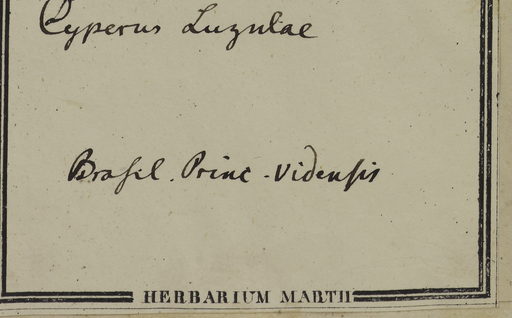 Cyperus Luzulae
Brasil. Princ. Vidensis
HERBARIUM MARTII